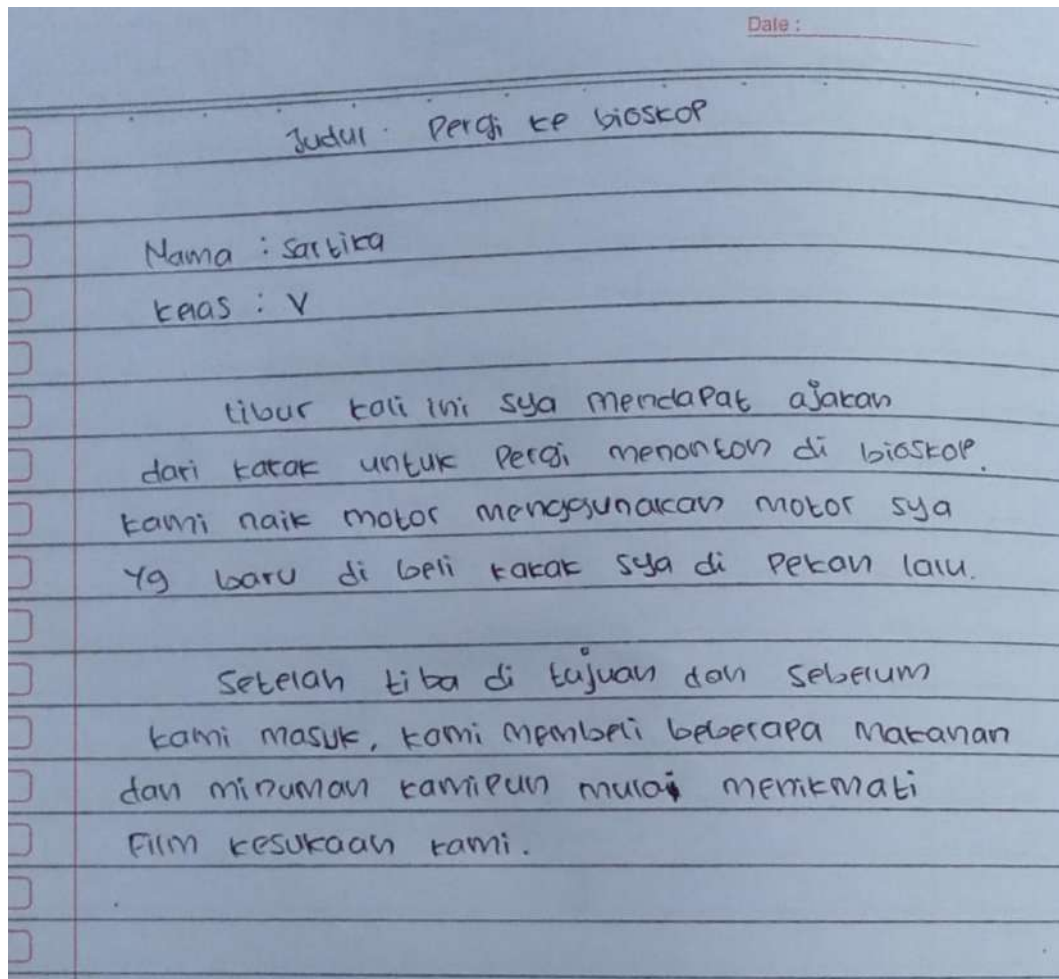 Date :
Judul : Pergi ke bioskop
Nama : Sartika
kelas : V
libur kali ini sya mendapat ajakan
dari kakak untuk Pergi menonton di bioskop.
kami naik motor menggunakan motor sya
yg baru di beli kakak sya di Pekan lalu.
Setelah tiba di tujuan dan sebelum
kami masuk, kami membeli beberapa makanan
dan minuman kamipun mulai menikmati
Film kesukaan kami.